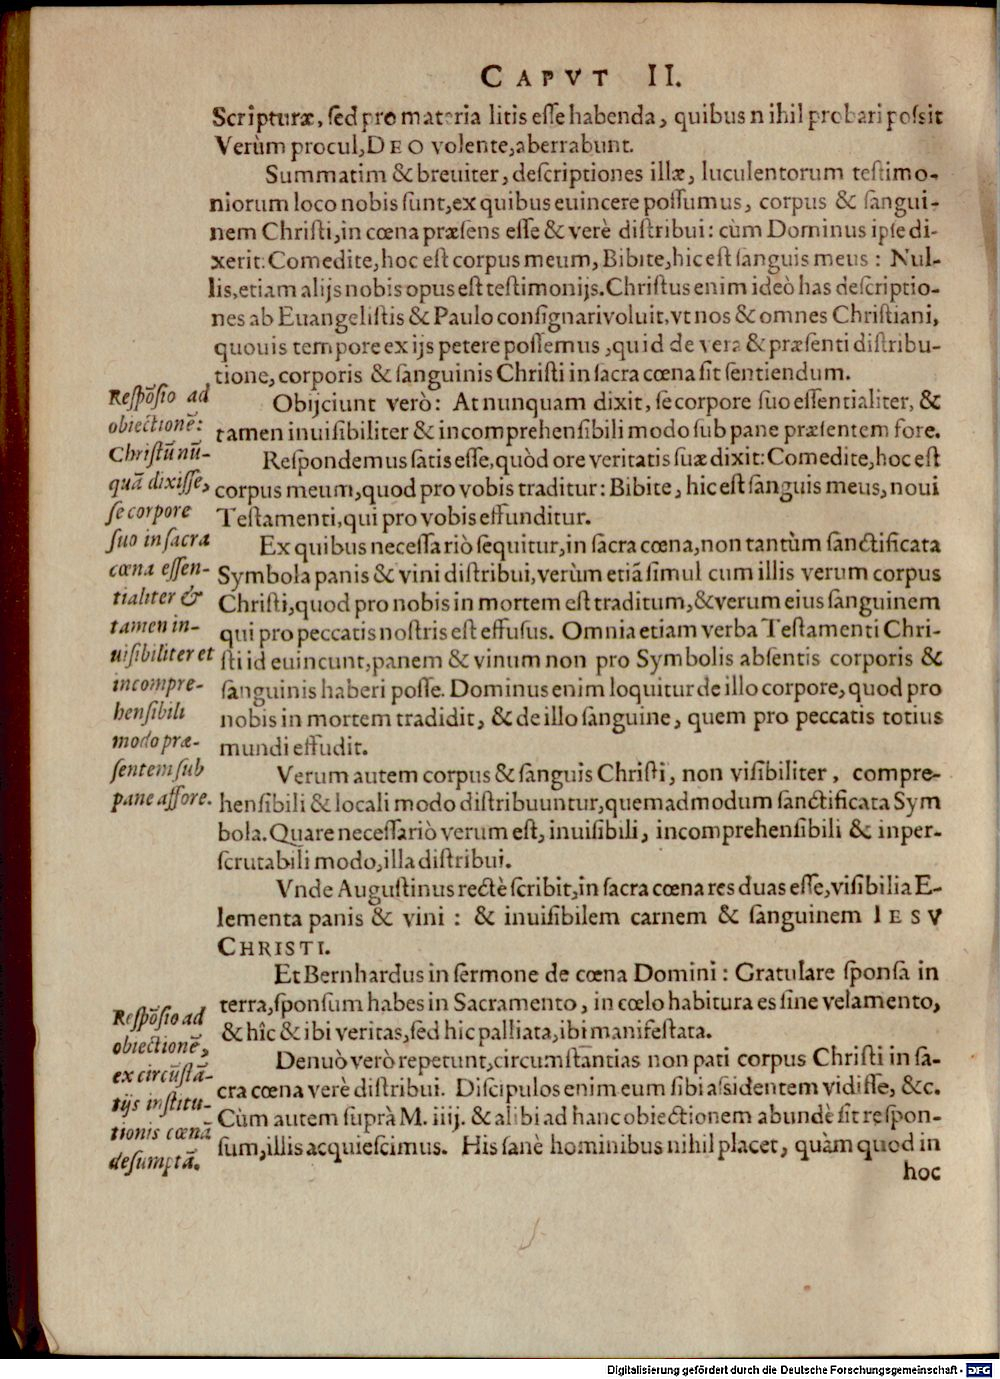 CAPVT II.
Scripturæ, ſed pro materia litis eſſe habenda, quibus nihil probari poſsit
Verùm procul, DEO volente, aberrabunt.
Summatim & breuiter, deſcriptiones illæ, luculentorum teſtimo-
niorum loco nobis ſunt, ex quibus euincere poſſumus, corpus & ſangui-
nem Chriſti, in cœna præſens eſſe & verè diſtribui: cùm Dominus ipſe di-
xerit: Comedite, hoc eſt corpus meum, Bibite, hic eſt ſanguis meus: Nul-
lis, etiam alijs nobis opus eſt teſtimonijs. Chriſtus enim ideò has deſcriptio-
nes ab Euangeliſtis & Paulo conſignari voluit, vt nos & omnes Chriſtiani,
quouis tempore ex ijs petere poſſemus, quid de vera & præſenti diſtribu-
tione, corporis & ſanguinis Chriſti in ſacra cœna ſit ſentiendum.
Reſpõſio ad
obiectionẽ:
Chriſtũ nũ-
quã dixiſſe,
ſe corpore
ſuo in ſacra
cœna eſſen-
tialiter &
tamen in-
uiſibiliter et
incompre-
henſibili
modo præ-
ſentem ſub
pane affore.
Obijciunt verò: At nunquam dixit, ſe corpore ſuo eſſentialiter, &
tamen inuiſibiliter & incomprehenſibili modo ſub pane præſentem fore.
Reſpondemus ſatis eſſe, quòd ore veritatis ſuæ dixit: Comedite, hoc eſt
corpus meum, quod pro vobis traditur: Bibite, hic eſt ſanguis meus, noui
Teſtamenti, qui pro vobis effunditur.
Ex quibus neceſſariò ſequitur, in ſacra cœna, non tantùm ſanctificata
Symbola panis & vini diſtribui, verùm etiã ſimul cum illis verum corpus
Chriſti, quod pro nobis in mortem eſt traditum, & verum eius ſanguinem
qui pro peccatis noſtris eſt effuſus. Omnia etiam verba Teſtamenti Chri-
ſti id euincunt, panem & vinum non pro Symbolis abſentis corporis &
ſanguinis haberi poſſe. Dominus enim loquitur de illo corpore, quod pro
nobis in mortem tradidit, & de illo ſanguine, quem pro peccatis totius
mundi effudit.
Verum autem corpus & ſanguis Chriſti, non viſibiliter, compre-
henſibili & locali modo diſtribuuntur, quemadmodum ſanctificata Sym
bola. Quare neceſſariò verum eſt, inuiſibili, incomprehenſibili & inper-
ſcrutabili modo, illa diſtribui.
Vnde Auguſtinus rectè ſcribit, in ſacra cœna res duas eſſe, viſibilia E-
lementa panis & vini: & inuiſibilem carnem & ſanguinem IESV
CHRISTI.
Et Bernhardus in ſermone de cœna Domini: Gratulare ſponſa in
terra, ſponſum habes in Sacramento, in cœlo habitura es ſine velamento,
& hîc & ibi veritas, ſed hic palliata, ibi manifeſtata.
Reſpõſio ad
obiectionẽ,
ex circũſtã-
tijs inſtitu-
tionis cœnæ
deſumptã.
Denuò verò repetunt, circumſtantias non pati corpus Chriſti in ſa-
cra cœna verè diſtribui. Diſcipulos enim eum ſibi aſsidentem vidiſſe, &c.
Cùm autem ſuprà M. iiij. & alibi ad hanc obiectionem abundè ſit reſpon-
ſum, illis acquieſcimus. His ſanè hominibus nihil placet, quàm quod in
hoc
Digitalisierung gefördert durch die Deutsche Forschungsgemeinschaft - DFG